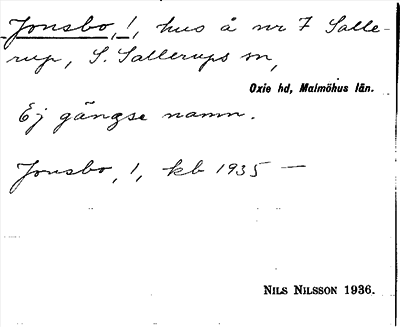 Jonsbo, !, hus å nr 7 Salle-
rup, S. Sallerups sn,
Oxie hd, Malmöhus län.
Ej gängse namn.
Jonsbo, !, kb 1935 —
NILS NILSSON 1936.